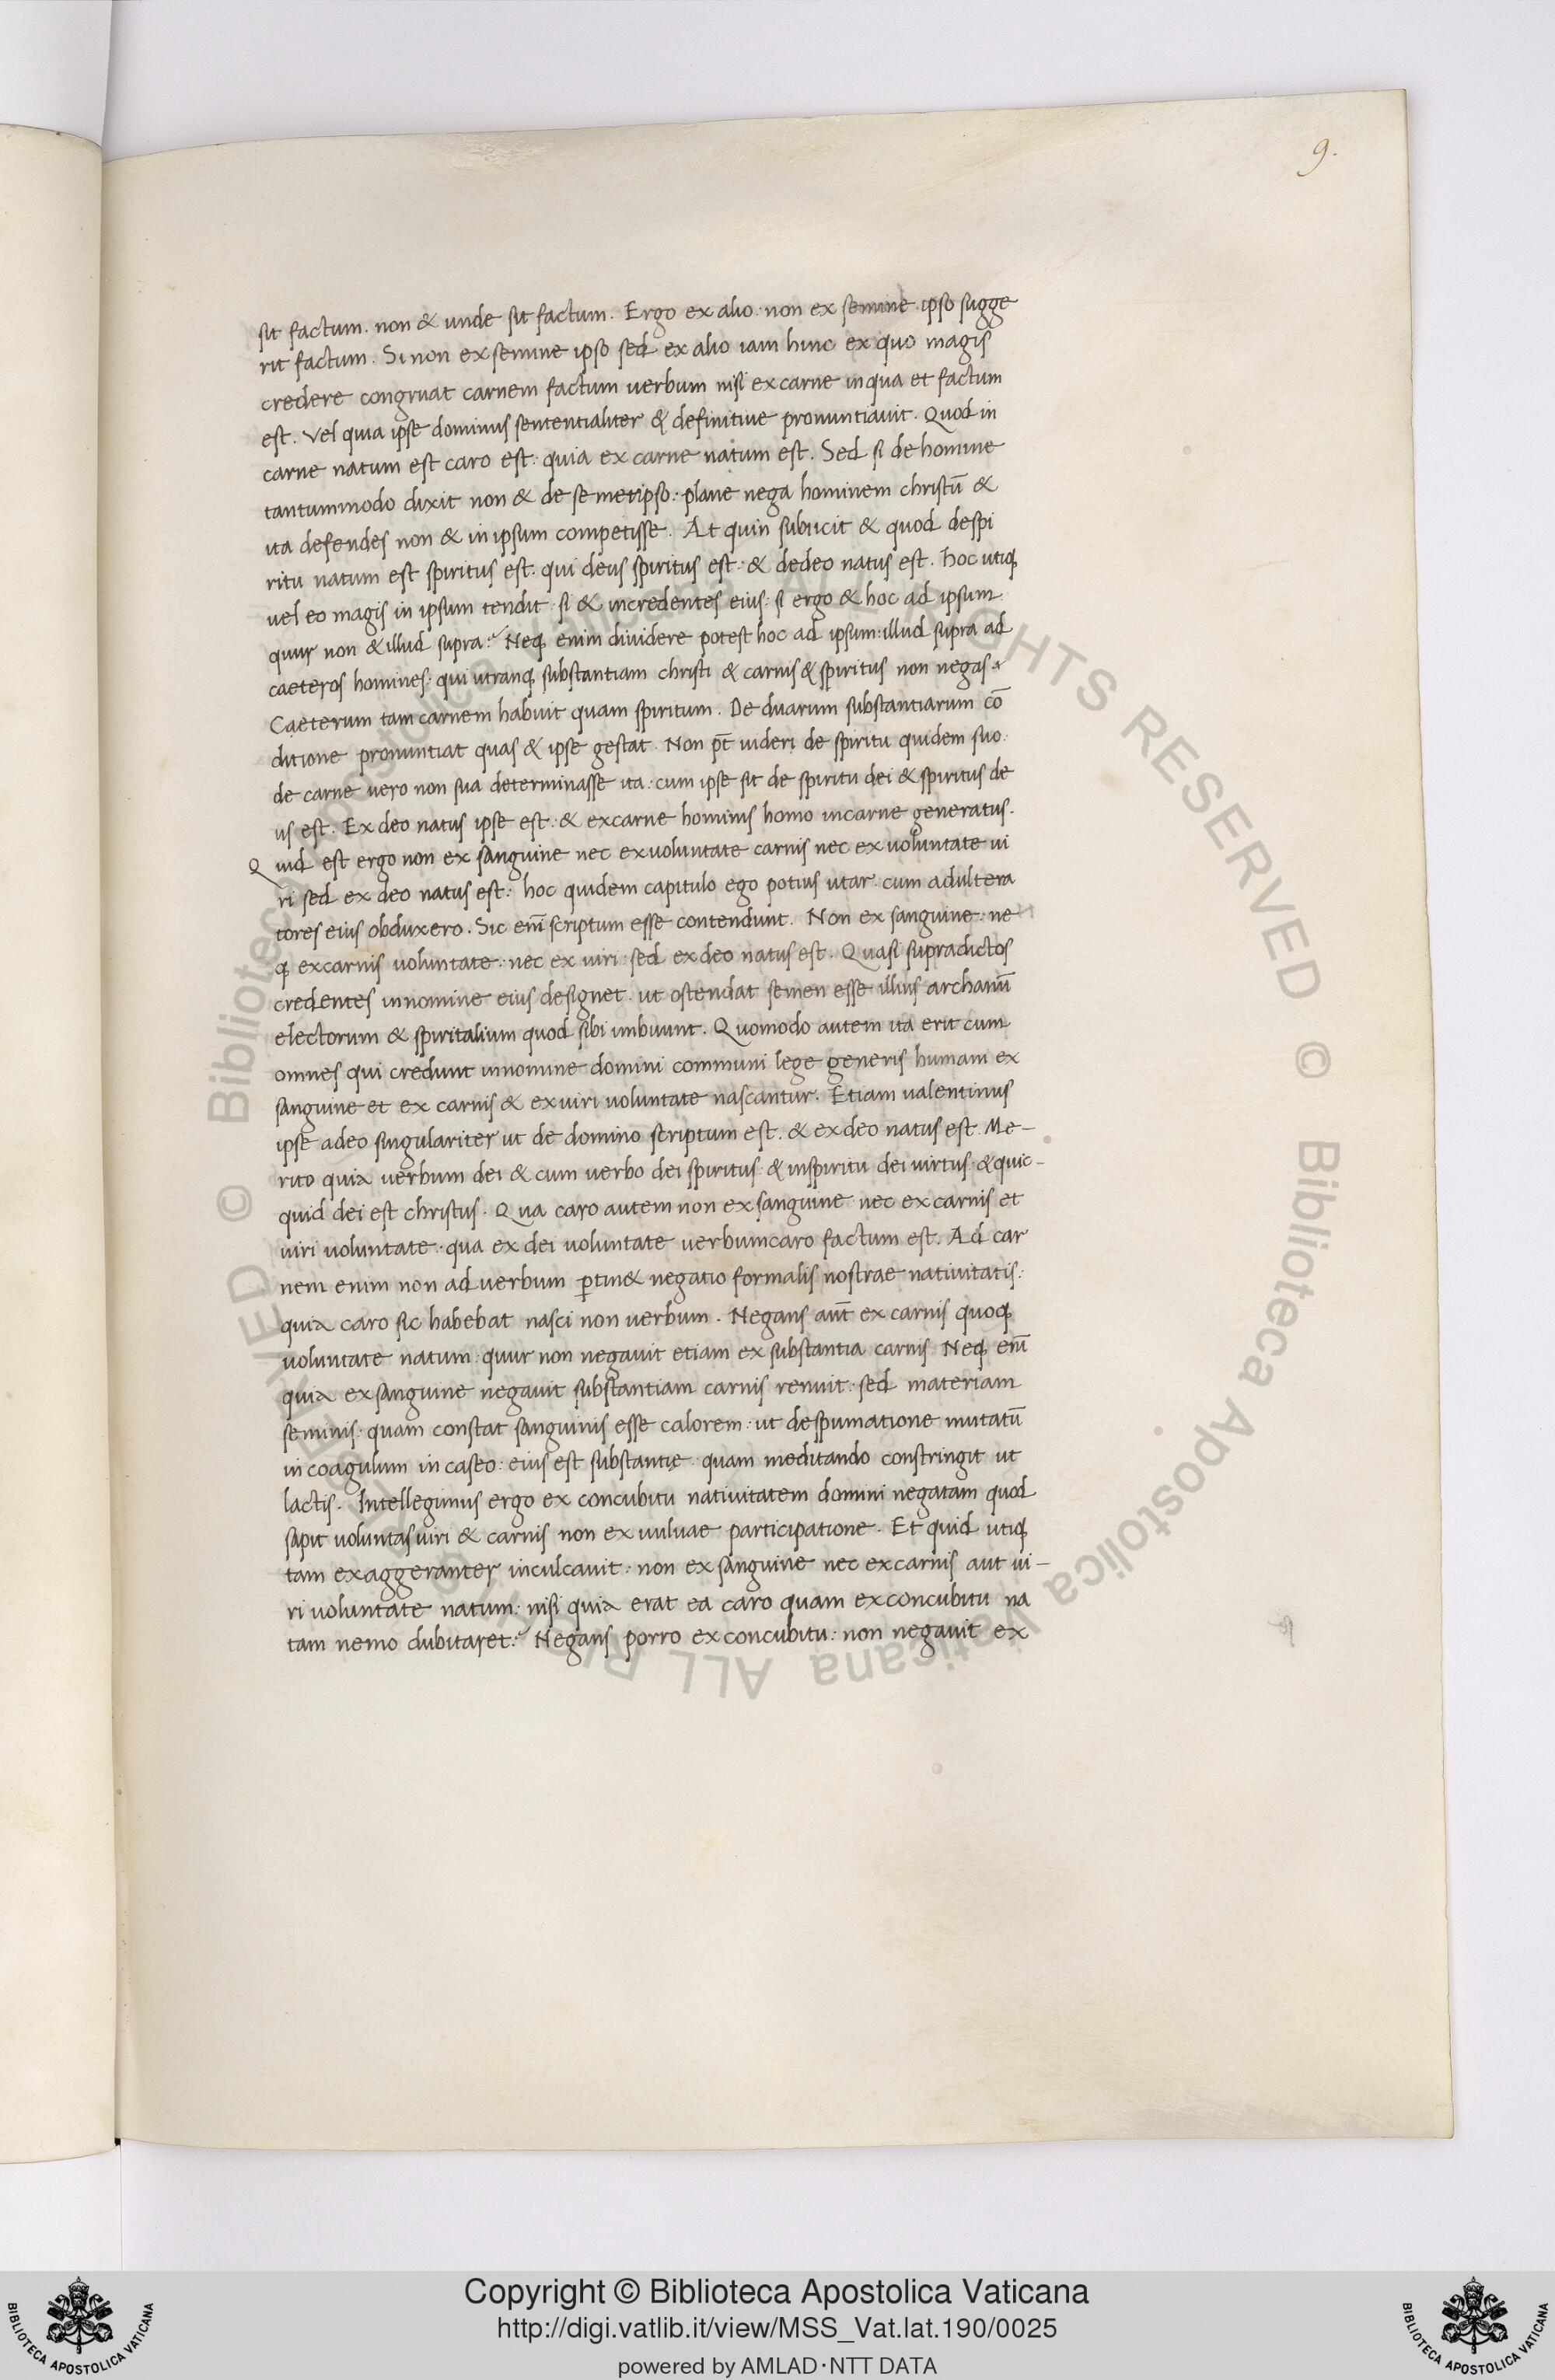 9.
sit factum. non & unde sit factum. Ergo ex alio. non ex semine. ipso sugge
rit factum. Si non ex semine ipso sed ex alio iam hinc ex quo magis
credere congruat carnem factum verbum nisi ex carne in qua et factum
est. Vel quia ipse dominus sententialiter & definitive pronuntiavit. Quod in
carne natum est caro est: quia ex carne natum est. Sed si de homine
tantummodo dixit non & de semetipso: plane nega hominem christū &
ita defendes non & in ipsum competisse. At quin subiicit & quod de spi
ritu natum est spiritus est. qui deus spiritus est: & de deo natus est. hoc utiq;
vel eo magis in ipsum tendit: si & in credentes eius: si ergo & hoc ad ipsum
quur non & illud supra? Neq; enim dividere potest hoc ad ipsum: illud supra ad
caeteros homines: qui utranq; substantiam christi & carnis & spiritus non negas.
Caeterum tam carnem habuit quam spiritum. De duarum substantiarum cō
ditione pronuntiat quas & ipse gestat. Non pt̄ uideri de spiritu quidem suo.
de carne uero non sua determinasse ita: cum ipse sit de spiritu dei & spiritus de
us est. Ex deo natus ipse est: & ex carne hominis homo in carne generatus.
Quid est ergo non ex sanguine nec ex uoluntate carnis nec ex uoluntate ui
ri sed ex deo natus est: hoc quidem capitulo ego potius utar cum adultera
tores eius obduxero. Sic enī scriptum esse contendunt. Non ex sanguine: ne
q; ex carnis uoluntate: nec ex uiri: sed ex deo natus est. Quasi supradictos
credentes in nomine eius designet. ut ostendat semen esse illius archanū
electorum & spiritalium quod sibi imbuunt. Quomodo autem ita erit cum
omnes qui credunt in nomine domini communi lege generis humani ex
sanguine et ex carnis & ex uiri uoluntate nascantur. Etiam ualentinus
ipse adeo singulariter ut de domino scriptum est. & ex deo natus est. Me-
rito quia uerbum dei & cum uerbo dei spiritus: & in spiritu dei uirtus. & quic-
quid dei est christus. Qua caro autem non ex sanguine nec ex carnis et
uiri uoluntate. qua ex dei uoluntate uerbum caro factum est. Ad car
nem enim non ad uerbum ptin& negatio formalis nostrae natiuitatis:
quia caro sic habebat nasci non uerbum. Negans aūt ex carnis quoq;
uoluntate natum: quur non negauit etiam ex substantia carnis Neq; enī
quia ex sanguine negauit substantiam carnis renuit: sed materiam
seminis: quam constat sanguinis esse calorem: ut despumatione mutatū
in coagulum in caseo: eius est substantię quam meditando constringit ut
lactis. Intellegimus ergo ex concubitu natiuitatem domini negatam quod
sapit uoluntas uiri & carnis non ex uuluae participatione. Et quid utiq;
tam exaggeranter inculcauit: non ex sanguine nec ex carnis aut ui-
ri uoluntate natum: nisi quia erat ea caro quam ex concubitu na
tam nemo dubitaret? Negans porro ex concubitu: non negauit ex
© Biblioteca Apostolica Vaticana ALL RIGHTS RESERVED © Biblioteca Apostolica Vaticana ALL RIGHTS RESERVED
Copyright © Biblioteca Apostolica Vaticana
http://digi.vatlib.it/view/MSS_Vat.lat.190/0025
powered by AMLAD·NTT DATA
BIBLIOTECA APOSTOLICA VATICANA
BIBLIOTECA APOSTOLICA VATICANA